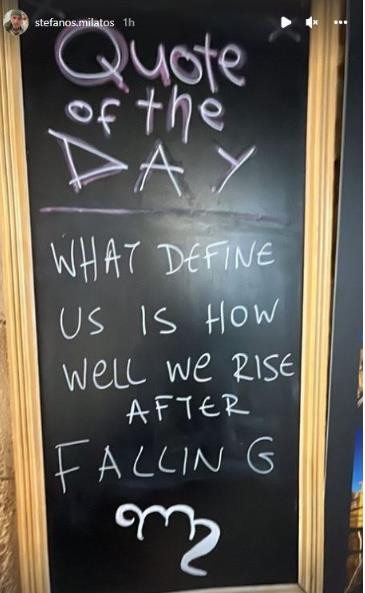 stefanos.milatos 1h
Quote
of the
DAY
WHAT DEFINE
US IS HOW
WELL WE RISE
AFTER
FALLING